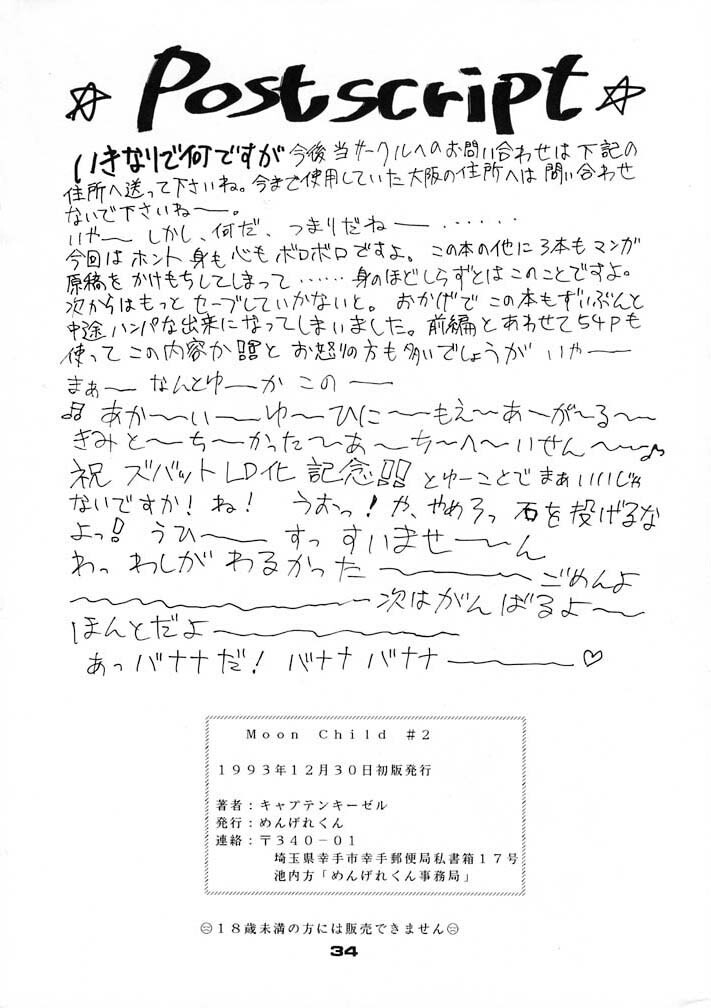 ☆ Postscript ☆
いきなりで何ですが今後当サークルへのお問い合わせは下記の
住所へ送って下さいね。今まで使用していた大阪の住所へは問い合わせ
ないで下さいねー。
いやー しかし、何だ、つまりだねー‥‥‥
今回はホント身も心もボロボロですよ。この本の他に3本もマンガ
原稿をかけもちしてしまって‥‥‥身のほどしらずとはこのことですよ。
次からはもっとセーブしていかないと。おかげでこの本もずいぶんと
中途ハンパな出来になってしまいました。前編とあわせて54Pも
使ってこの内容か!!!と お怒りの方も多いでしょうが いやー
まぁー なんとゆーか この ー
♫ あか〜い〜ゆ〜ひに〜もえ〜あ〜が〜る〜
きみと〜ち〜かった〜あ〜ち〜へ〜いせん〜♪
祝 ズバットLD化 記念!! とゆーことでまぁいいじゃ
ないですか! ね! うおっ! や、やめろっ 石を投げるな
よっ! うひー すっすいませーん
わっ わしが わるかったー ごめんよ
〜 次はがんばるよ〜
ほんとだよ〜
あっバナナだ! バナナ バナナー♡
Moon Child #2
1993年12月30日初版発行
著者:キャプテンキーゼル
発行:めんげれくん
連絡:〒340−01
埼玉県幸手市幸手郵便局私書箱17号
池内方「めんげれくん事務局」
18歳未満の方には販売できません
34